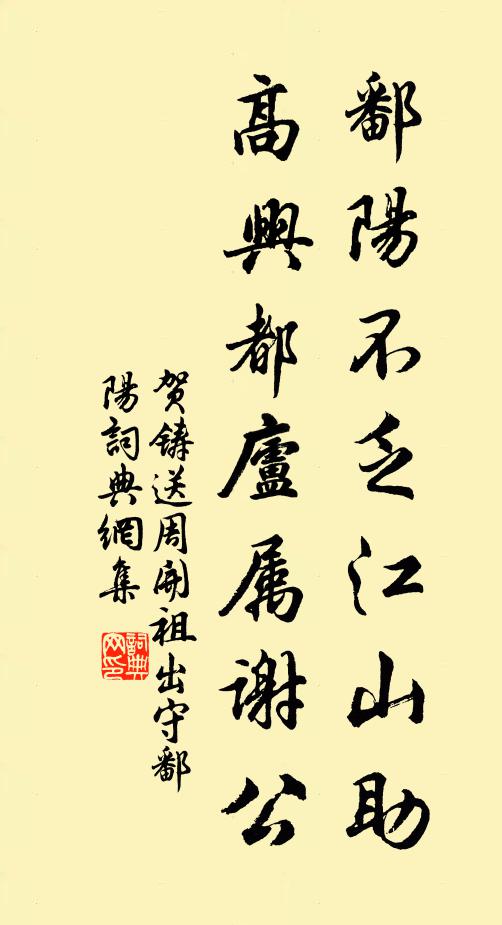 鄱陽不乏江山助
高興都廬属謝公
贺鑄送周開祖出守鄱
陽詞典網集
詞典網印